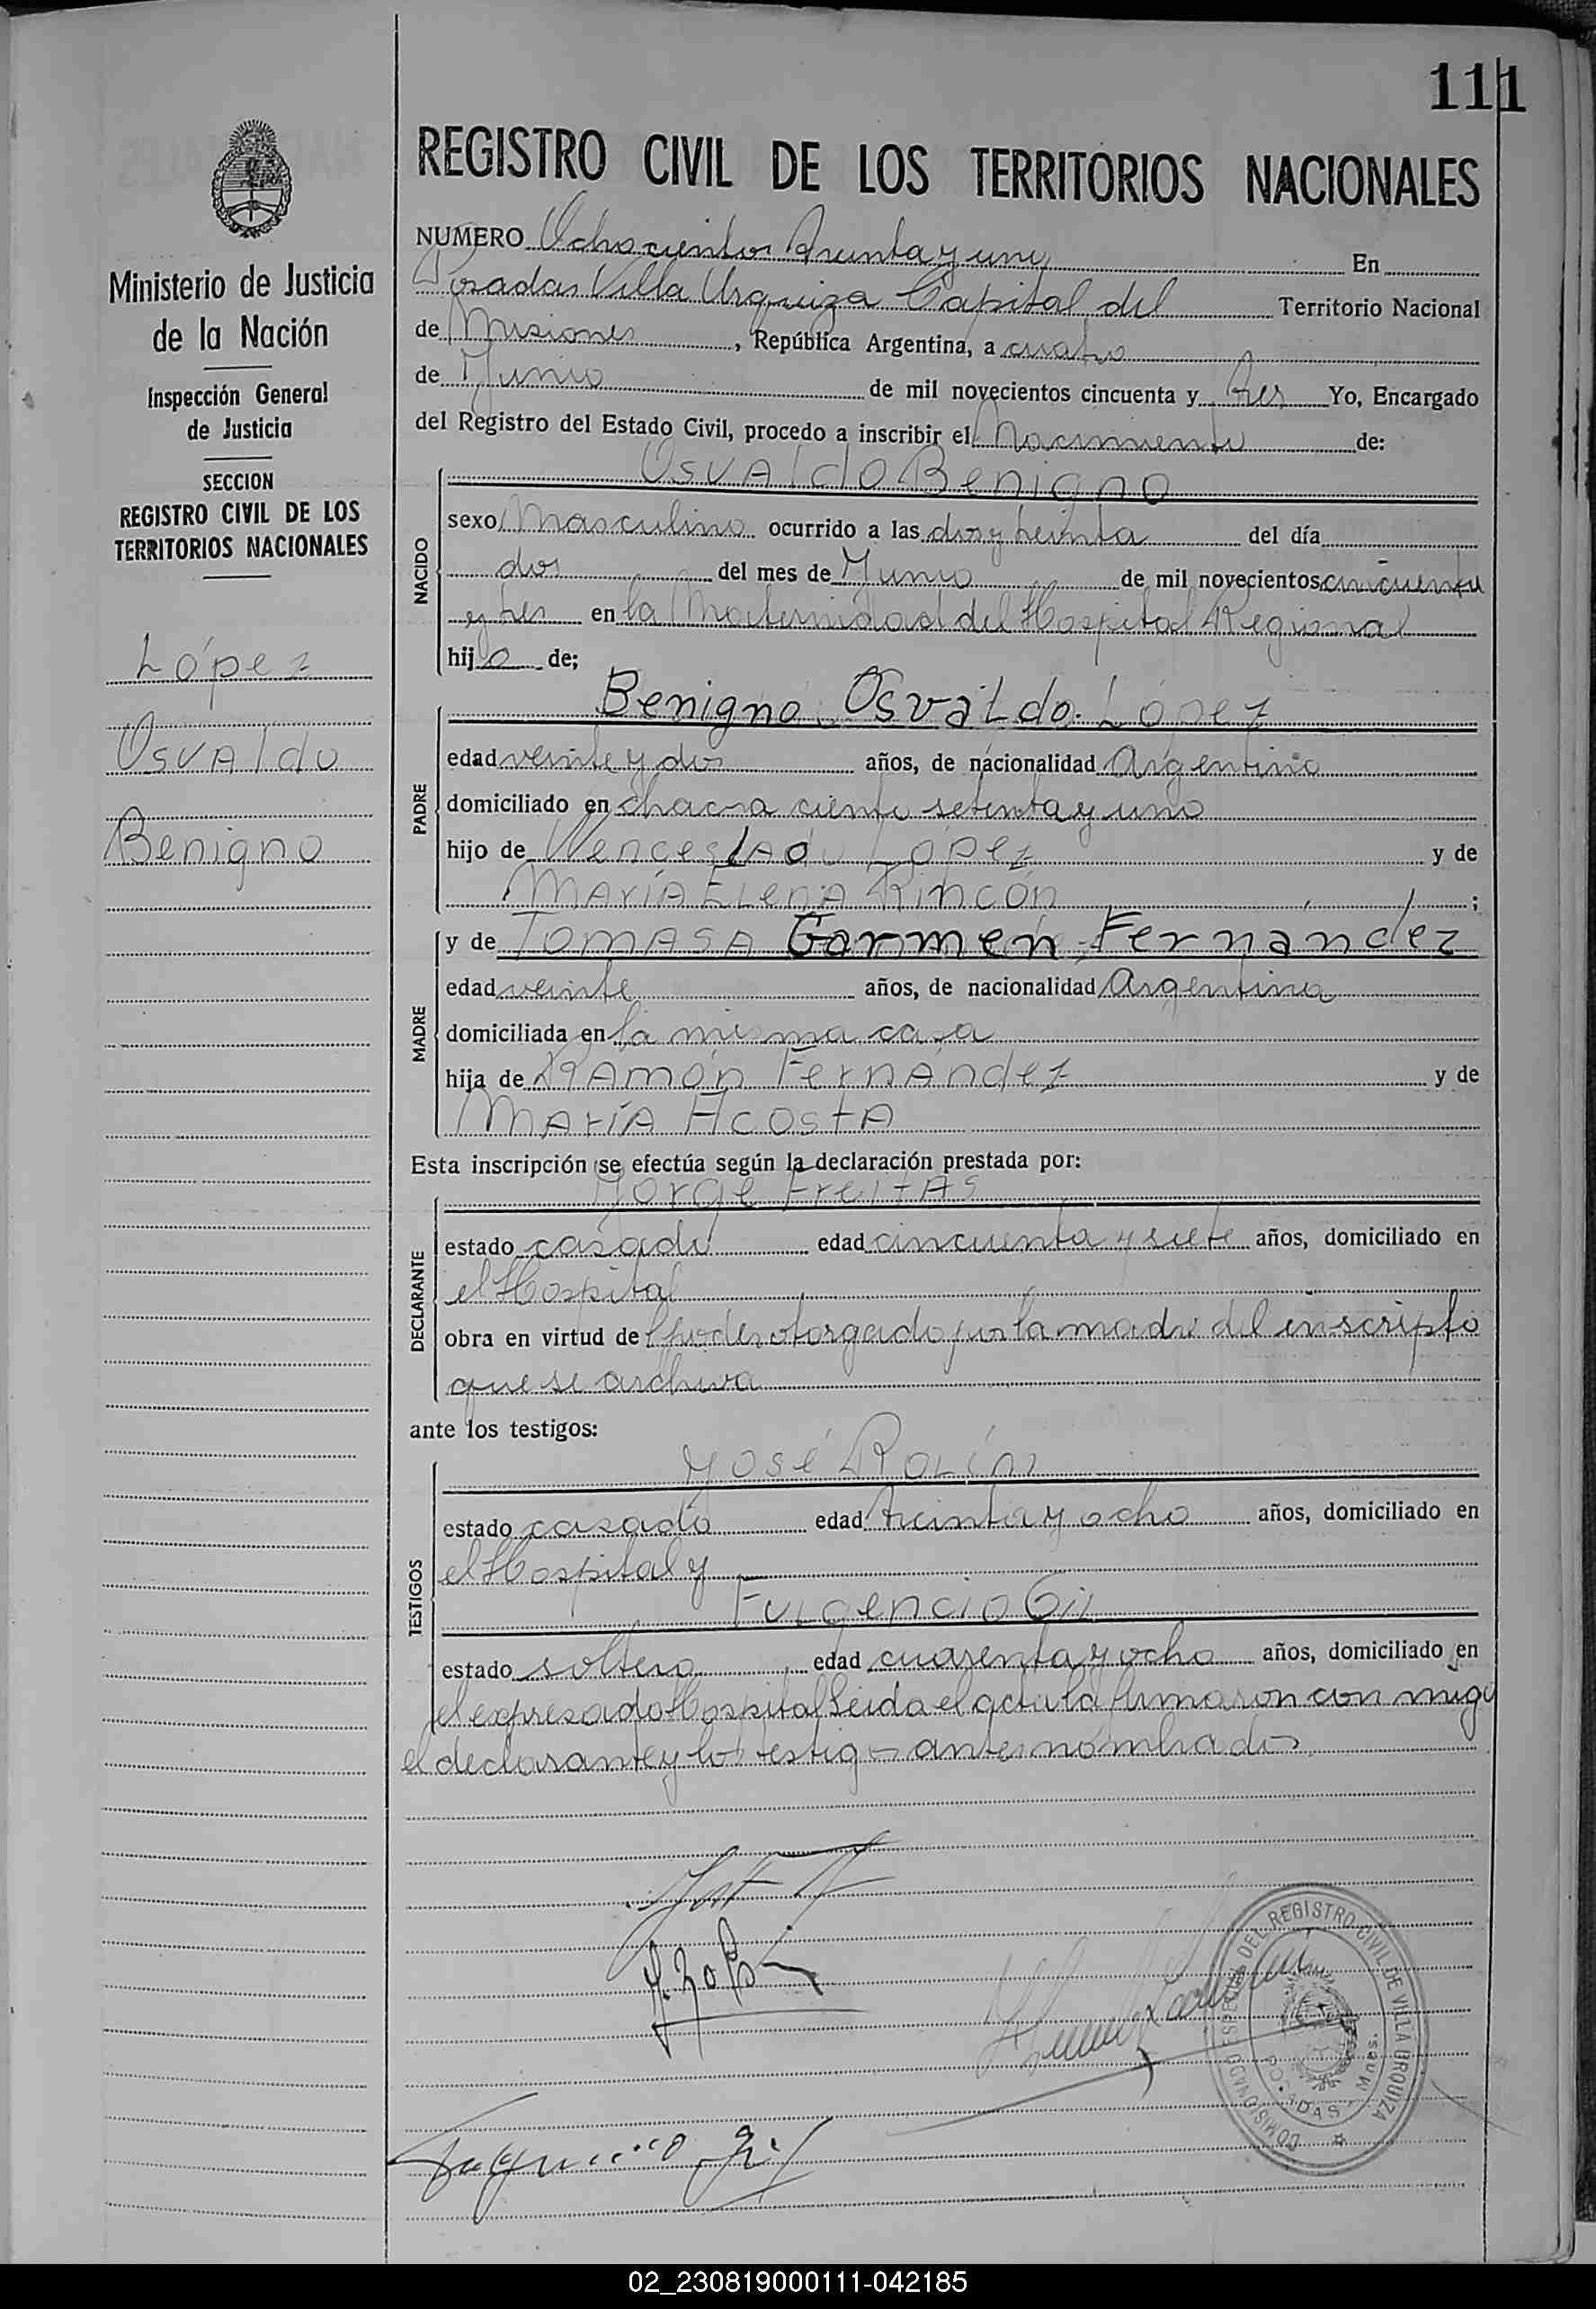 111
REGISTRO CIVIL DE LOS TERRITORIOS NACIONALES
Ministerio de Justicia
de la Nación
Inspección General
de Justicia
SECCION
REGISTRO CIVIL DE LOS
TERRITORIOS NACIONALES
López
Osvaldo
Benigno
NUMERO Ochocientos treinta y uno En
Posadas Villa Urquiza Capital del Territorio Nacional
de Misiones, República Argentina, a cuatro
de Junio de mil novecientos cincuenta y tres Yo, Encargado
del Registro del Estado Civil, procedo a inscribir el Nacimiento de:
Osvaldo Benigno
NACIDO
sexo Masculino ocurrido a las dos y treinta del día
dos del mes de Junio de mil novecientos cincuenta
y tres en la Maternidad del Hospital Regional
hijo de;
Benigno Osvaldo López
PADRE
edad veinte y dos años, de nacionalidad Argentino
domiciliado en chacra ciento setenta y uno
hijo de Wenceslao López y de
María Elena Rincón;
MADRE
y de Tomasa Carmen Fernández
edad veinte años, de nacionalidad Argentina
domiciliada en la misma casa
hija de Ramón Fernández y de
María Acosta
Esta inscripción se efectúa según la declaración prestada por:
Jorge Freitas
DECLARANTE
estado casado edad cincuenta y siete años, domiciliado en
el Hospital
obra en virtud de poder otorgado por la madre del inscripto
que se archiva
ante los testigos:
José Rolín
TESTIGOS
estado casado edad treinta y ocho años, domiciliado en
el Hospital y
Fulgencio Gil
estado soltero edad cuarenta y ocho años, domiciliado en
el expresado Hospital Leida el acta la firmaron con migo
el declarante y los testigos antes nombrados
COMISIONADO ESPECIAL DEL REGISTRO CIVIL DE VILLA URQUIZA
POSADAS, Mnes.
Fulgencio Gil
02_230819000111-042185